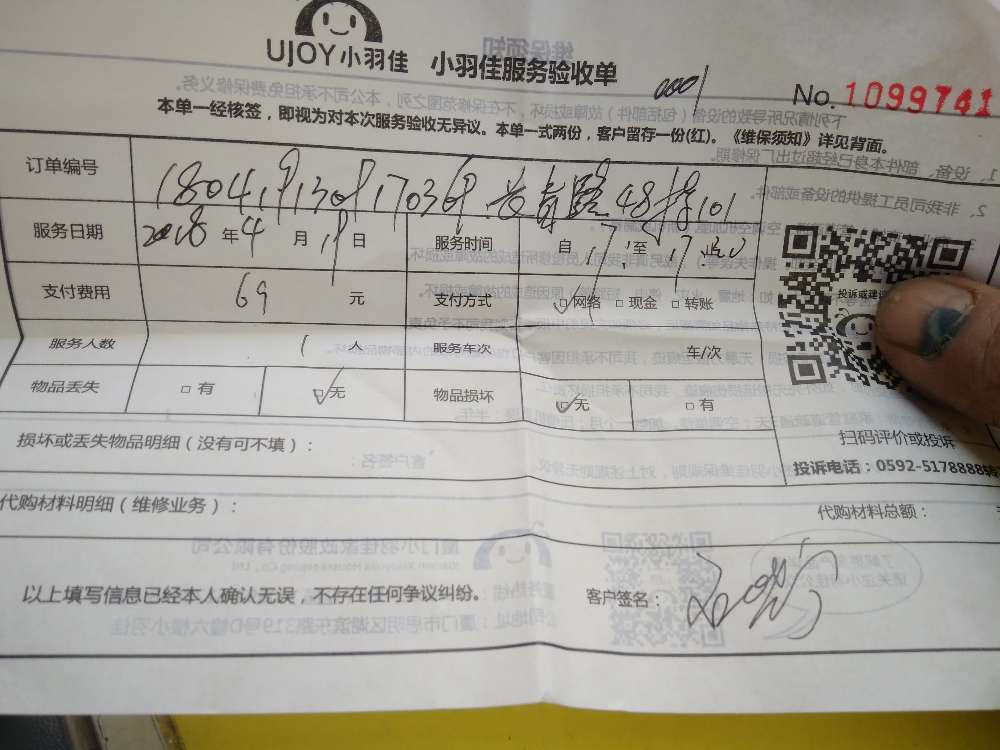 UJOY小羽佳 小羽佳服务验收单
0001
No. 1099741
本单一经核签，即视为对本次服务验收无异议。本单一式两份，客户留存一份(红)。《维保须知》详见背面。
订单编号 长青路48 101
服务日期 2018年4月19日 服务时间 自17:至17:
支付费用 69元 支付方式 □网络 □现金 □转账
投诉或建议
服务人数 1人 服务车次 车/次
物品丢失 □有 □无 物品损坏 □无 □有
损坏或丢失物品明细（没有可不填）：
扫码评价或投诉
投诉电话：0592-5178888
代购材料明细（维修业务）：
代购材料总额：
以上填写信息已经本人确认无误，不存在任何争议纠纷。 客户签名：